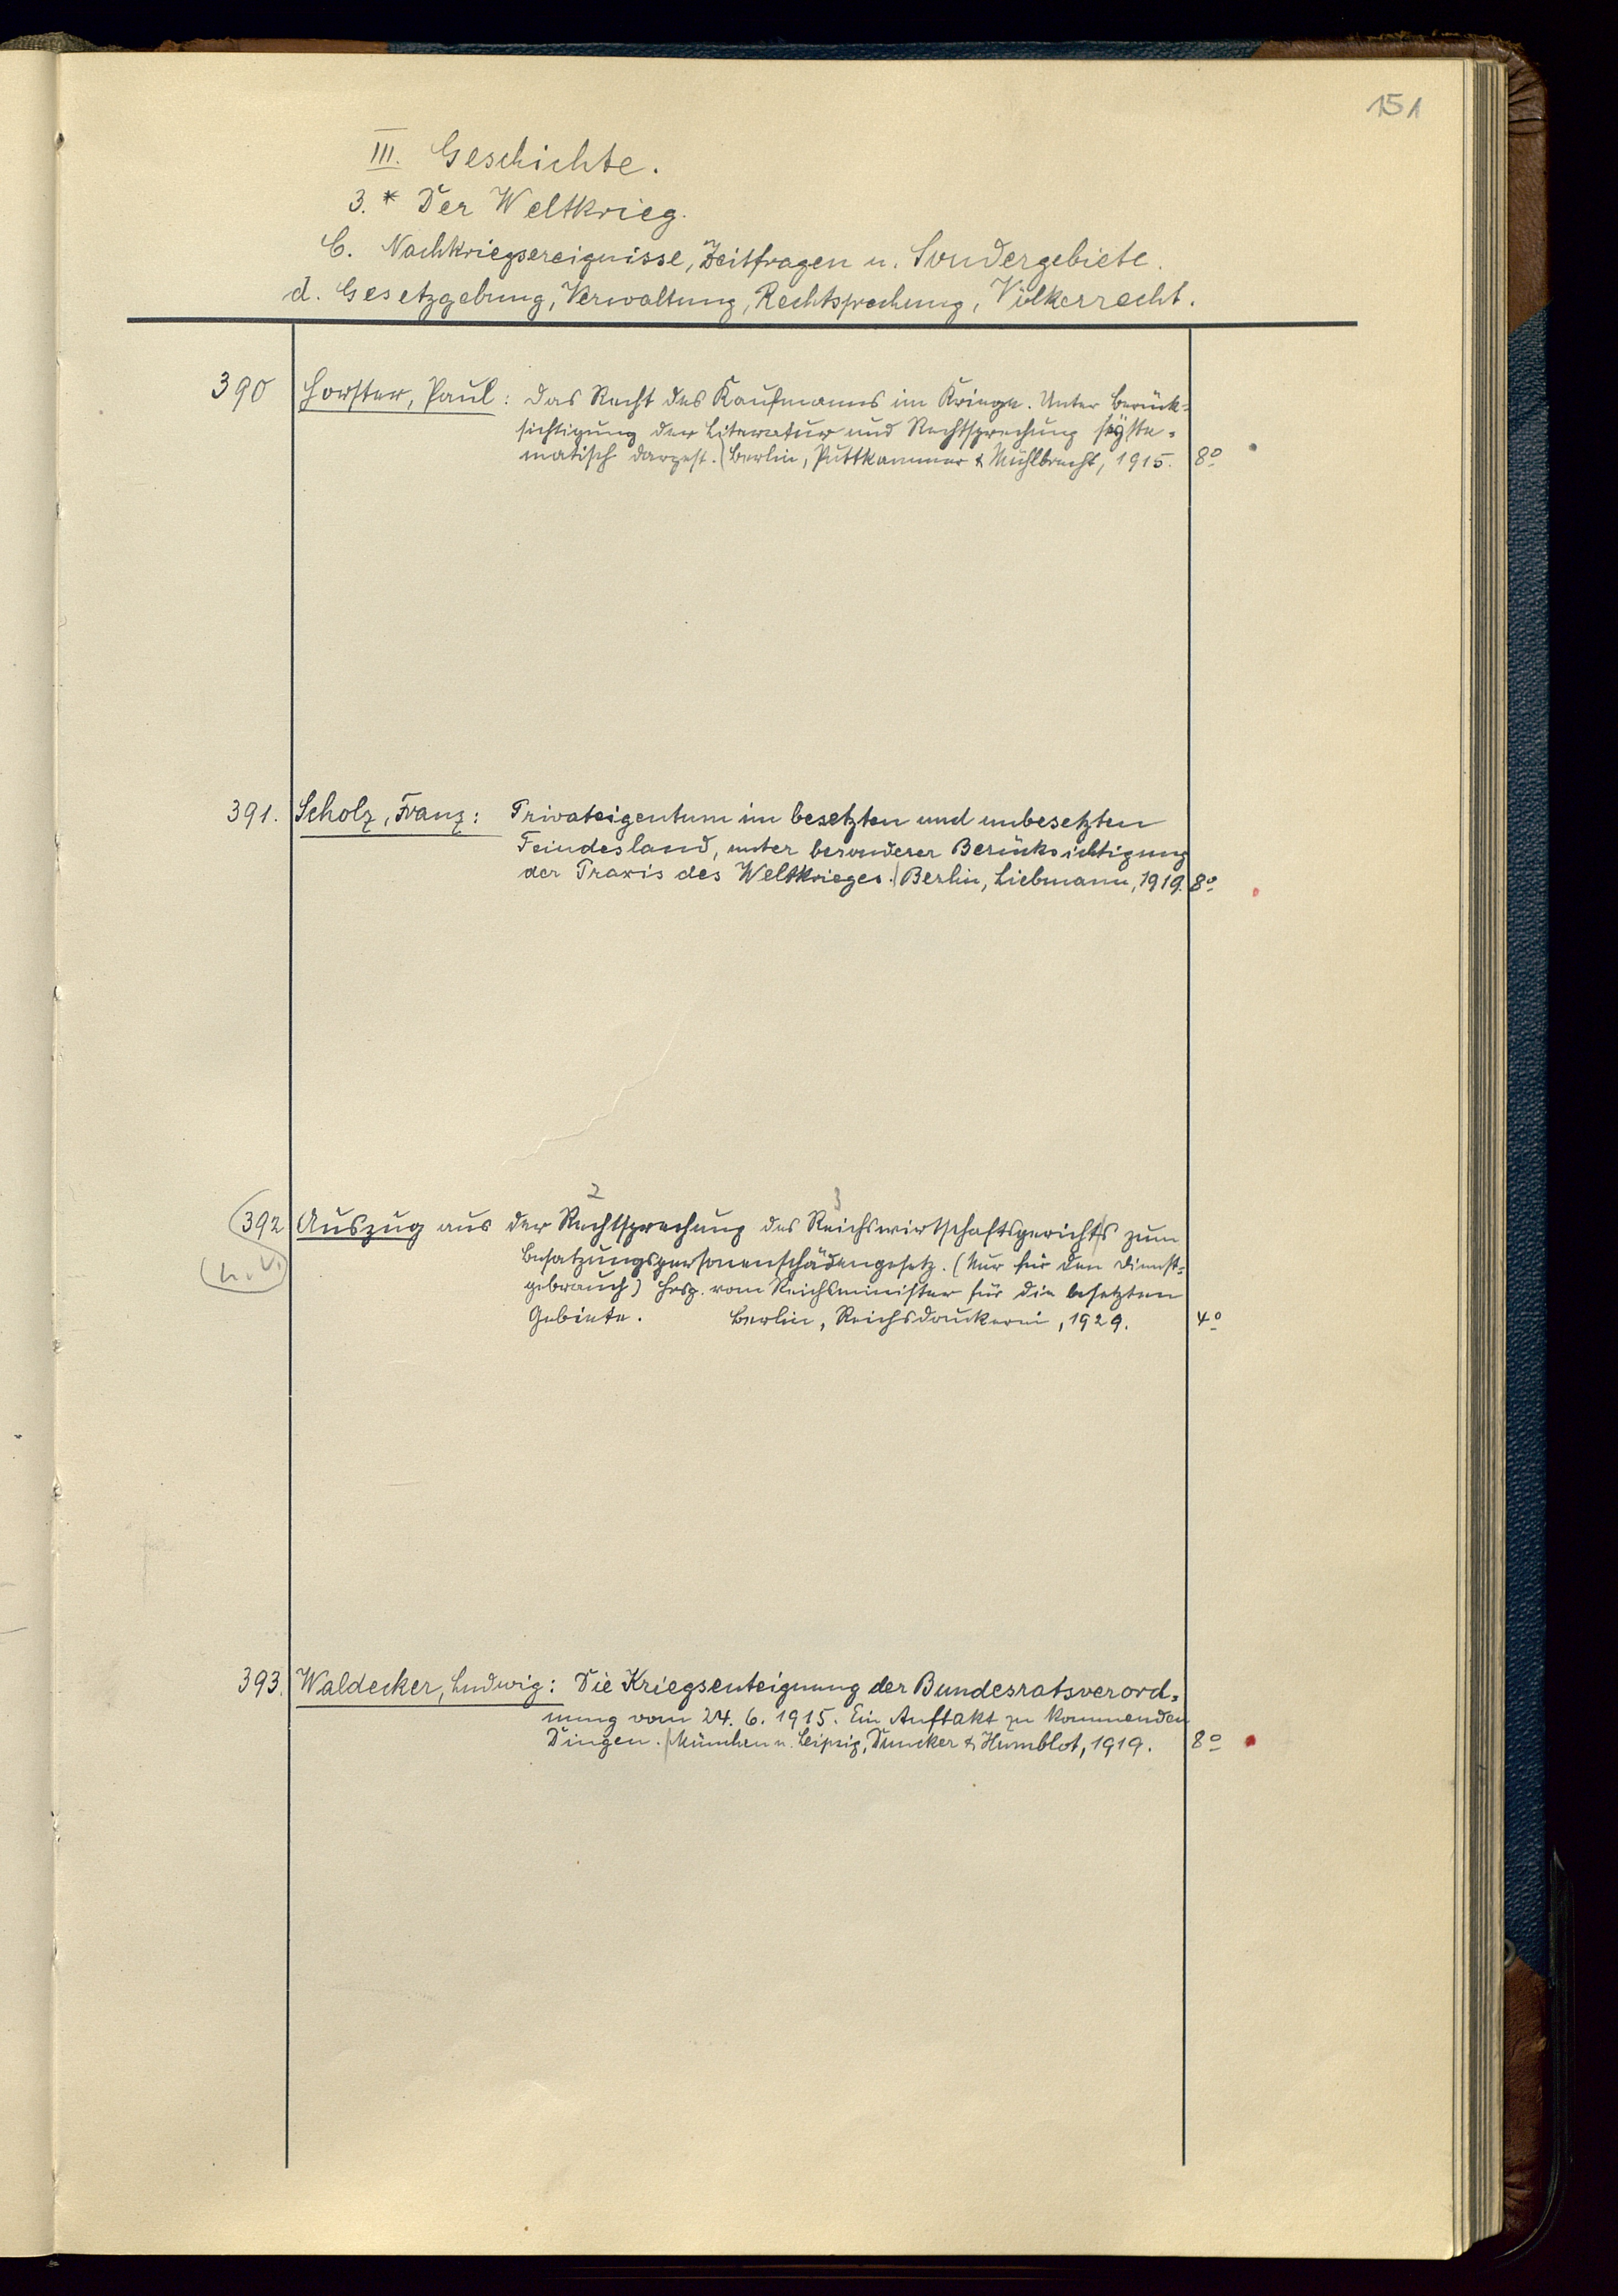 151
III. Geschichte.
3. * Der Weltkrieg.
C. Nachkriegsereignisse, Zeitfragen u. Sondergebiete.
d. Gesetzgebung, Verwaltung, Rechtsprechung, Völkerrecht.
390 Horster, Paul: Das Recht des Kaufmanns im Kriege. Unter Berück-
sichtigung der Literatur und Rechtsprechung syste-
matisch dargest. Berlin, Puttkammer & Mühlbrecht, 1915. 8°
391. Scholz, Franz: Privateigentum im besetzten und unbesetzten
Feindesland, unter besonderer Berücksichtigung
der Praxis des Weltkrieges. Berlin, Liebmann, 1919. 8°
2 3
392 Auszug aus der Rechtsprechung des Reichswirtschaftsgerichts zum
n. v. Besatzungspersonenschädengesetz. (Nur für den Dienst-
gebrauch) Hrsg. vom Reichsminister für die besetzten
Gebiete. Berlin, Reichsdruckerei, 1929. 4°
393. Waldecker, Ludwig: Die Kriegsenteignung der Bundesratsverord-
nung vom 24. 6. 1915. Ein Auftakt zu kommenden
Dingen. München u. Leipzig, Duncker & Humblot, 1919. 8°